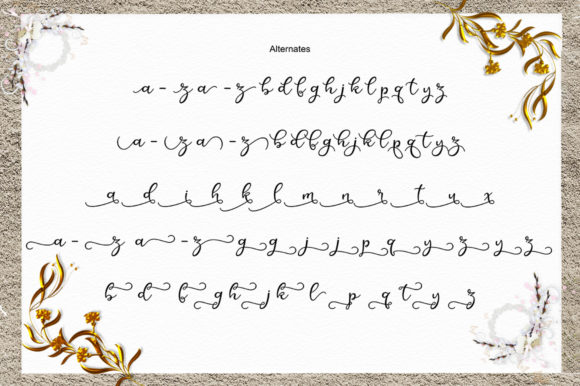 Alternates
a - z a - z b d f g h j k l p q t y z
a - z a - z b d f g h j k l p q t y z
a d i h k l m n r t u x
a - z a - z g g j j p q y z y z
b d f g h j k l p q t y z